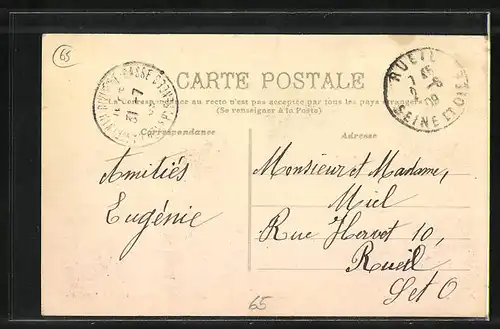 65
CARTE POSTALE
La Correspondance au recto n'est pas acceptée par tous les pays étrangers
(Se renseigner à la Poste)
Correspondance
Adresse
RUEIL
7 45
2 -8
09
SEINE ET OISE
31 -7
Amitiés
Eugénie
Monsieur et Madame,
Miel
Rue Hervet 10,
Rueil
S et O
65